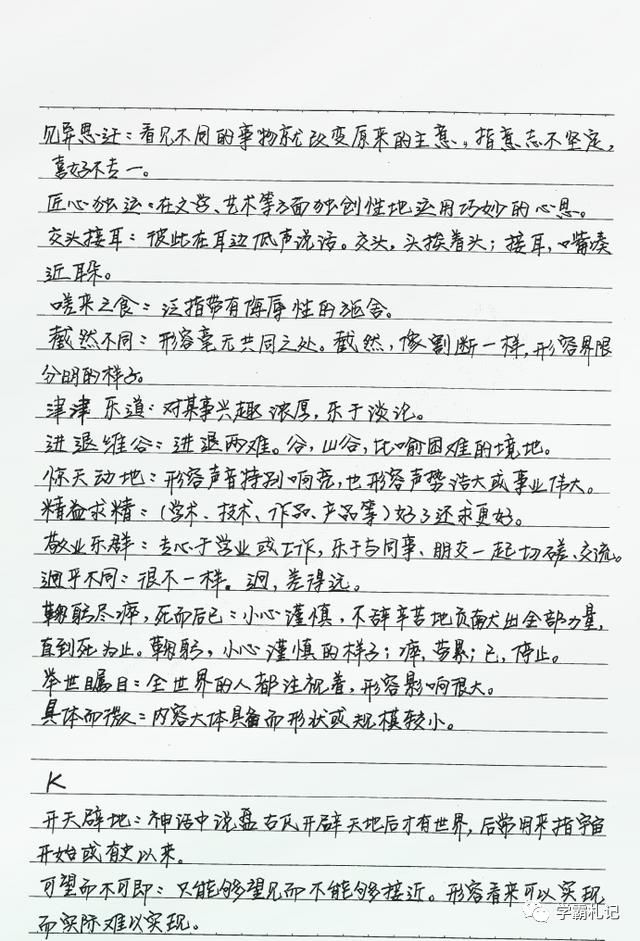 见异思迁：看见不同的事物就改变原来的主意。指意志不坚定，
喜好不专一。
匠心独运：在文学、艺术等方面独创性地运用巧妙的心思。
交头接耳：彼此在耳边低声说话。交头，头挨着头；接耳，口嘴凑
近耳朵。
嗟来之食：泛指带有侮辱性的施舍。
截然不同：形容毫无共同之处。截然，像割断一样，形容界限
分明的样子。
津津乐道：对某事兴趣浓厚，乐于谈论。
进退维谷：进退两难。谷，山谷，比喻困难的境地。
惊天动地：形容声音特别响亮，也形容声势浩大或事业伟大。
精益求精：（学术、技术、作品、产品等）好了还求更好。
敬业乐群：专心于学业或工作，乐于与同事、朋友一起切磋、交流。
迥乎不同：很不一样。迥，差得远。
鞠躬尽瘁，死而后已：小心谨慎，不辞辛苦地贡献出全部力量，
直到死为止。鞠躬，小心谨慎的样子；瘁，劳累；已，停止。
举世瞩目：全世界的人都注视着，形容影响很大。
具体而微：内容大体具备而形状或规模较小。
K
开天辟地：神话中说盘古氏开辟天地后才有世界，后常用来指宇宙
开始或有史以来。
可望而不可即：只能够望见而不能够接近。形容看来可以实现
而实际难以实现。
学霸札记